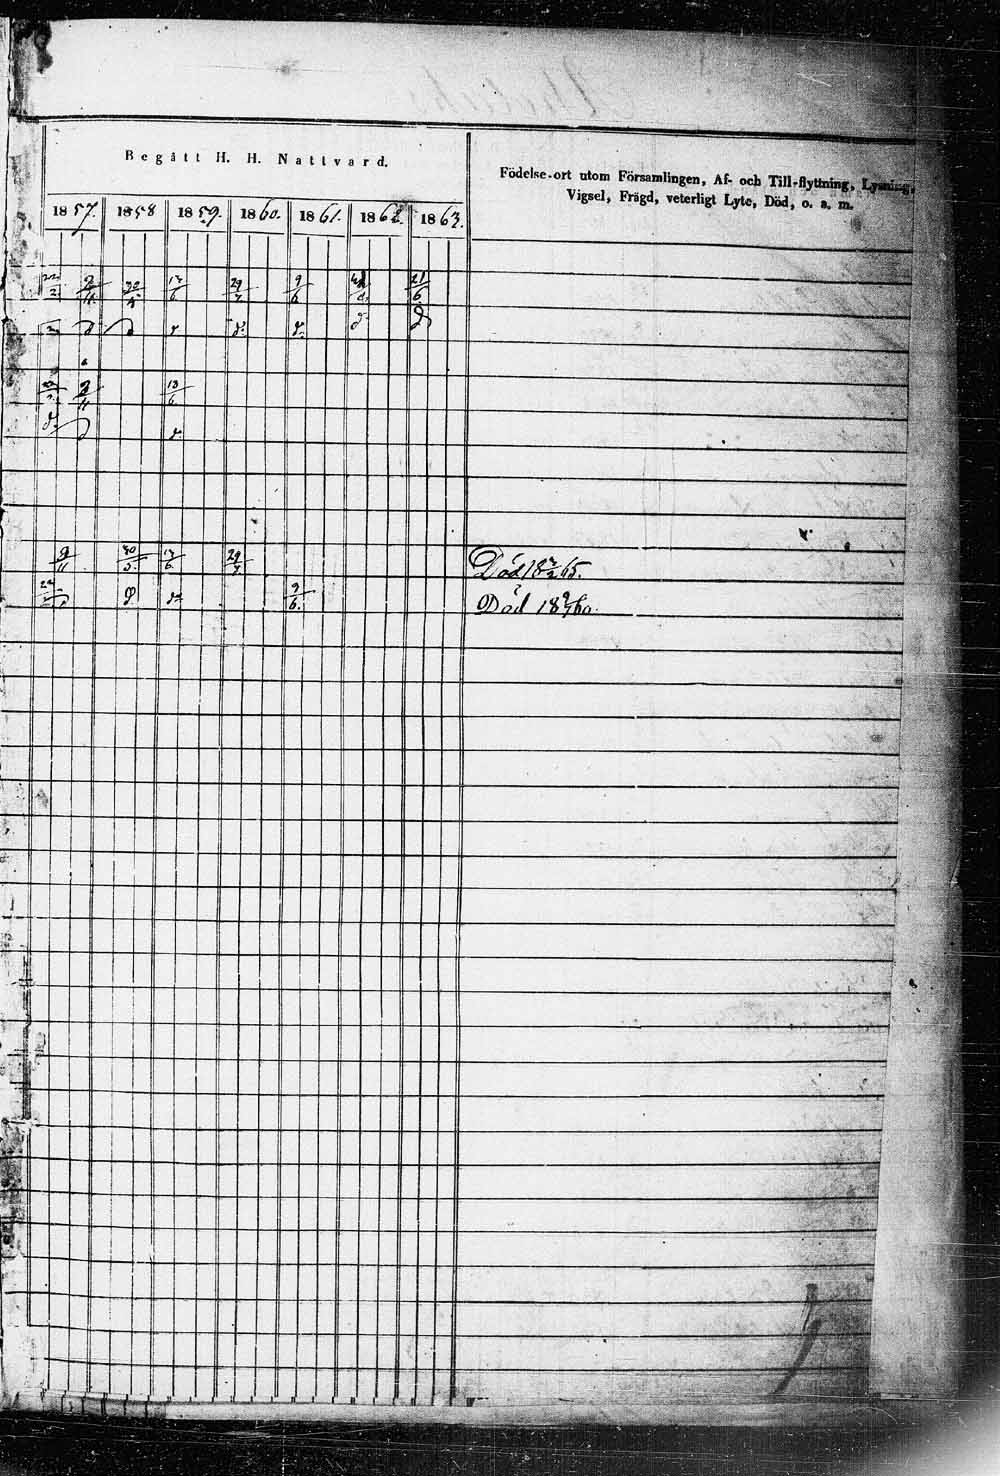 Begått H. H. Nattvard.
Födelse-ort utom Församlingen, Af- och Till-flyttning, Lysning,
Vigsel, Frägd, veterligt Lyte, Död, o. s. m.
1857. 1858 1859. 1860. 1861. 1862. 1863.
9/11 30/5 17/6 29/7 9/6 21/6
d d d d. d. d d
9/11 13/6
d. d
9/11 30/5 17/6 29/7 Död 18 65.
d d 9/6. Död 18 9/7 60.